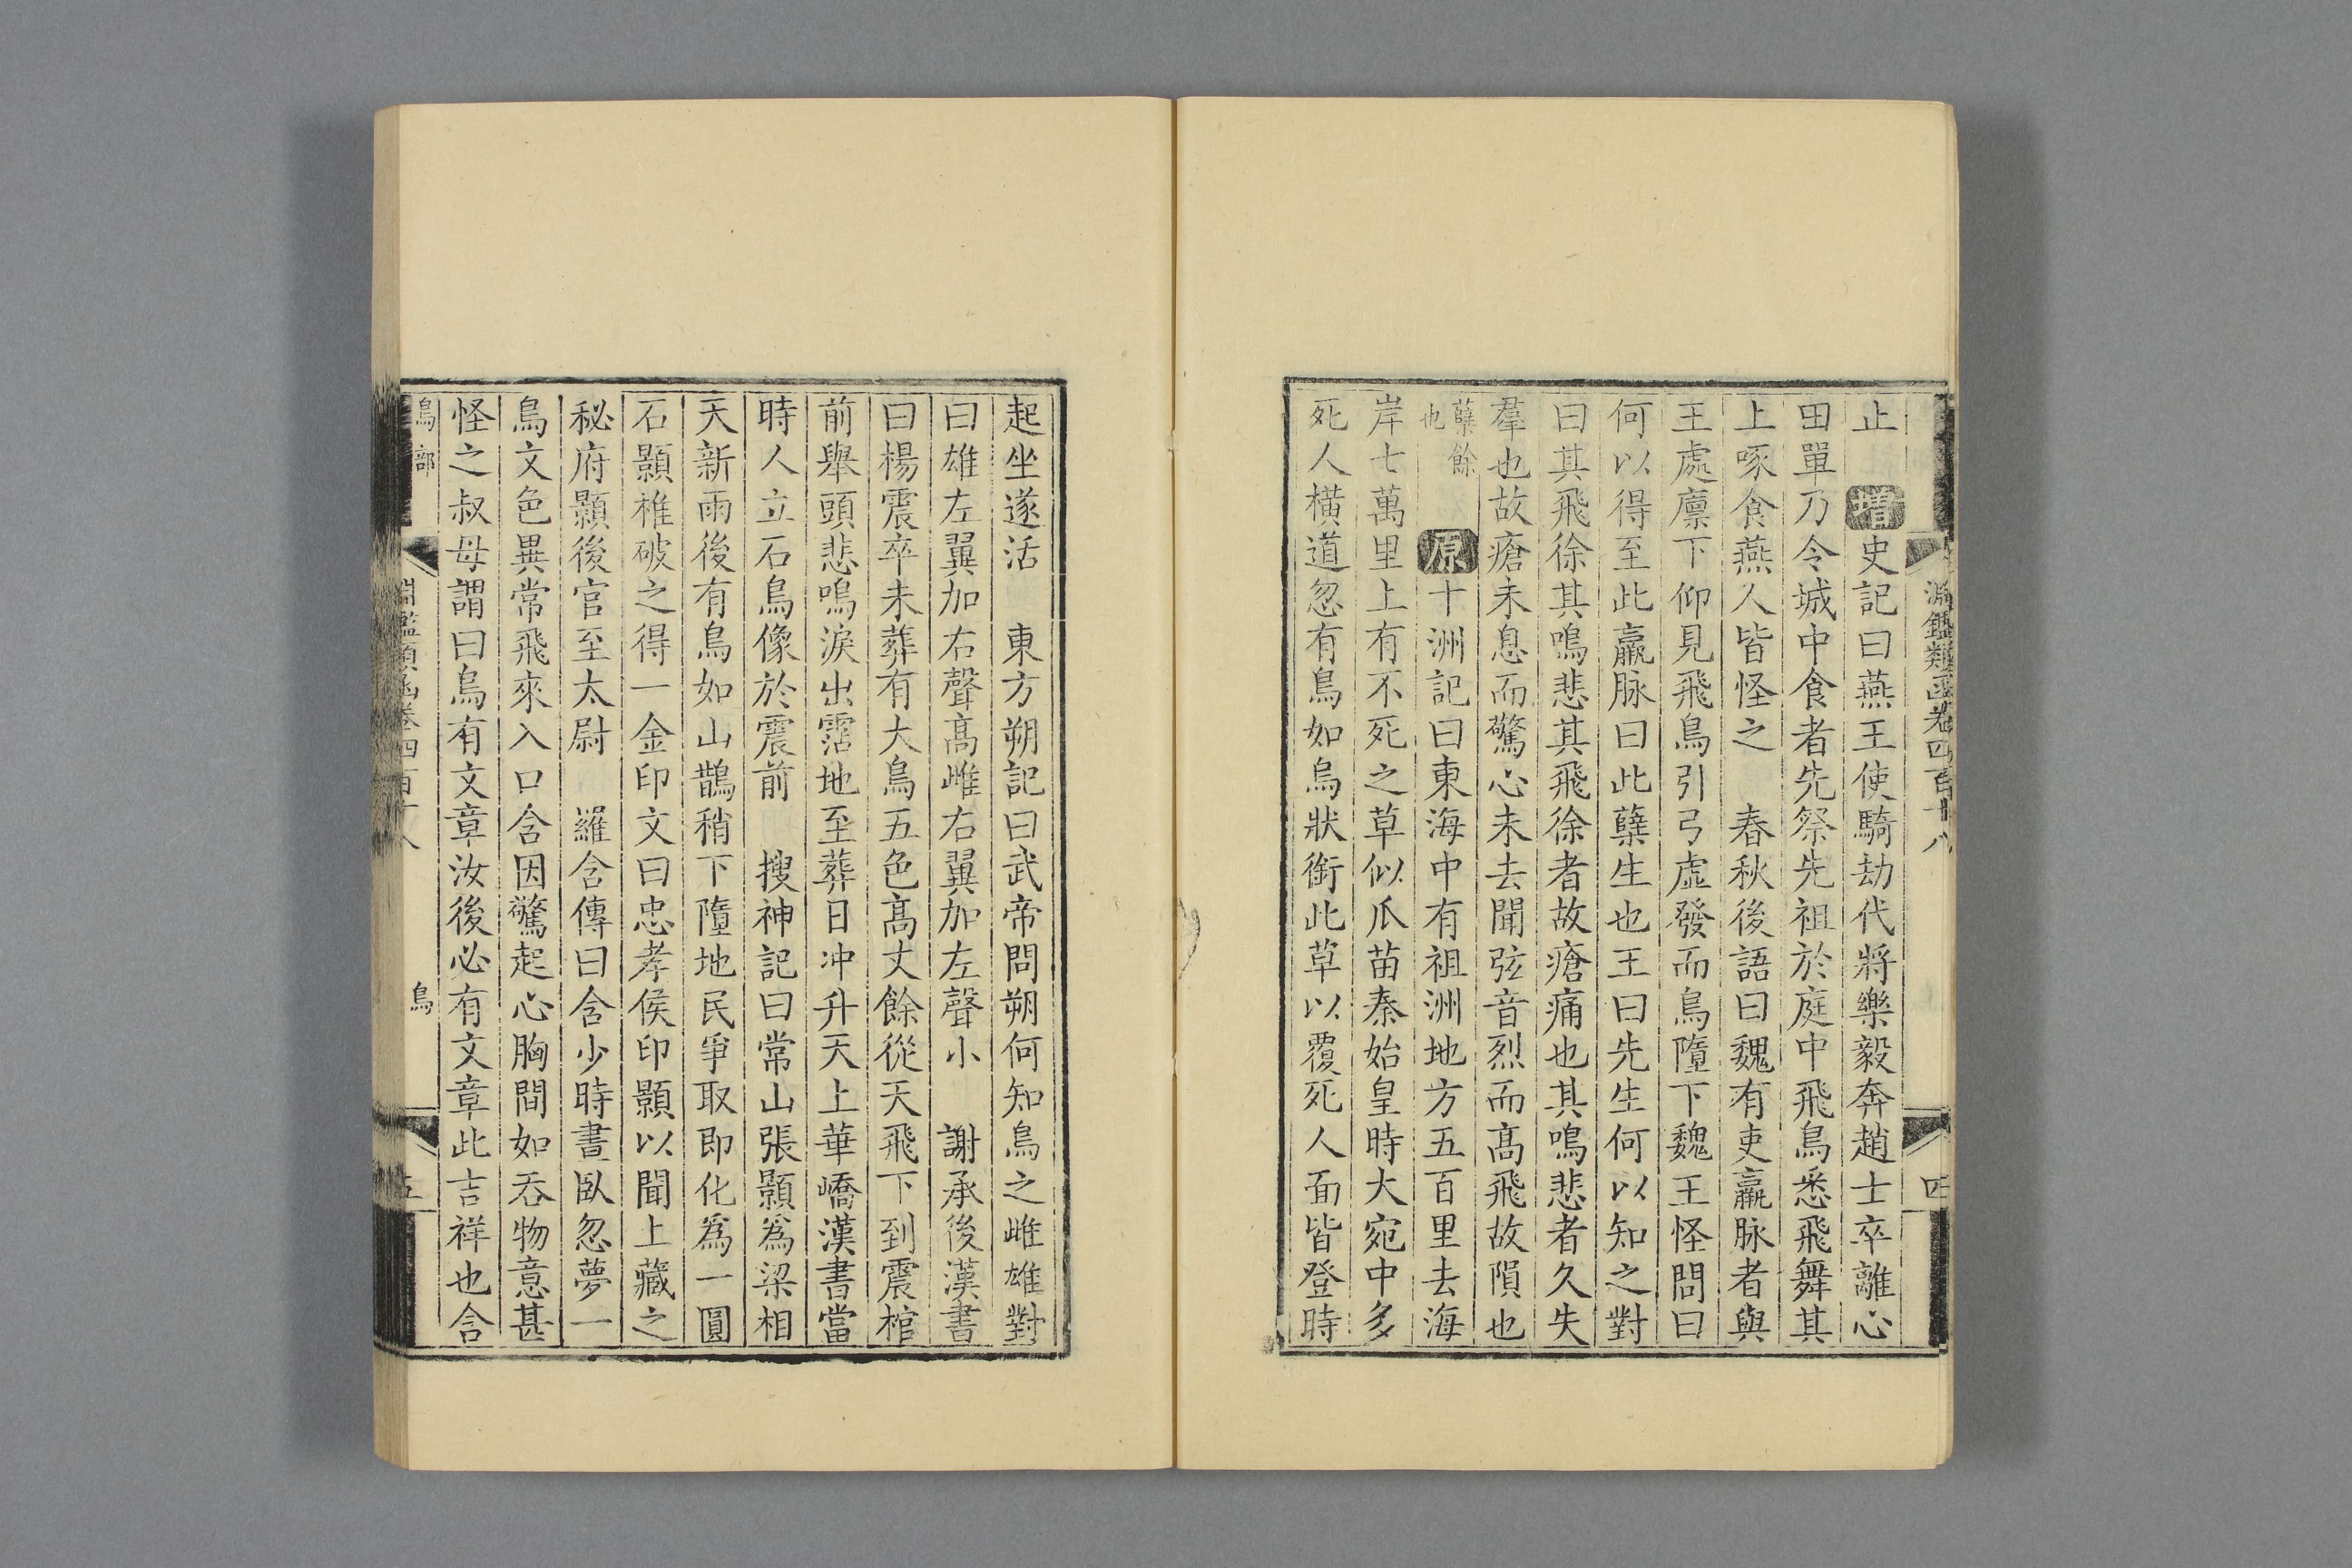 淵鑑類函卷四百十八
四
止　增史記曰燕王使騎劫代將樂毅奔趙士卒離心
田單乃令城中食者先祭先祖於庭中飛鳥悉飛舞其
上啄食燕人皆怪之　春秋後語曰魏有吏羸脉者與
王處廪下仰見飛鳥引弓虛發而鳥墮下魏王怪問曰
何以得至此羸脉曰此孽生也王曰先生何以知之對
曰其飛徐其鳴悲其飛徐者故瘡痛也其鳴悲者久失
羣也故瘡未息而驚心未去聞弦音烈而高飛故隕也
孽餘也　原十洲記曰東海中有祖洲地方五百里去海
岸七萬里上有不死之草似爪苗秦始皇時大宛中多
死人横道忽有鳥如烏狀銜此草以覆死人面皆登時
起坐遂活　東方朔記曰武帝問朔何知鳥之雌雄對
曰雄左翼加右聲高雌右翼加左聲小　謝承後漢書
曰楊震卒未葬有大鳥五色高丈餘從天飛下到震棺
前舉頭悲鳴淚出霑地至葬日冲升天上華嶠漢書當
時人立石鳥像於震前　搜神記曰常山張顥爲梁相
天新雨後有鳥如山鵲稍下墮地民爭取即化爲一圓
石顥椎破之得一金印文曰忠孝侯印顥以聞上藏之
秘府顥後官至太尉　羅含傳曰含少時晝臥忽夢一
鳥文色異常飛來入口含因驚起心胸間如吞物意甚
怪之叔母謂曰鳥有文章汝後必有文章此吉祥也含
鳥部
淵鑑類函卷四百十八
鳥
五